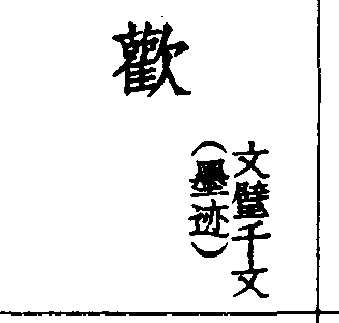 歡
文璧千文
（墨迹）